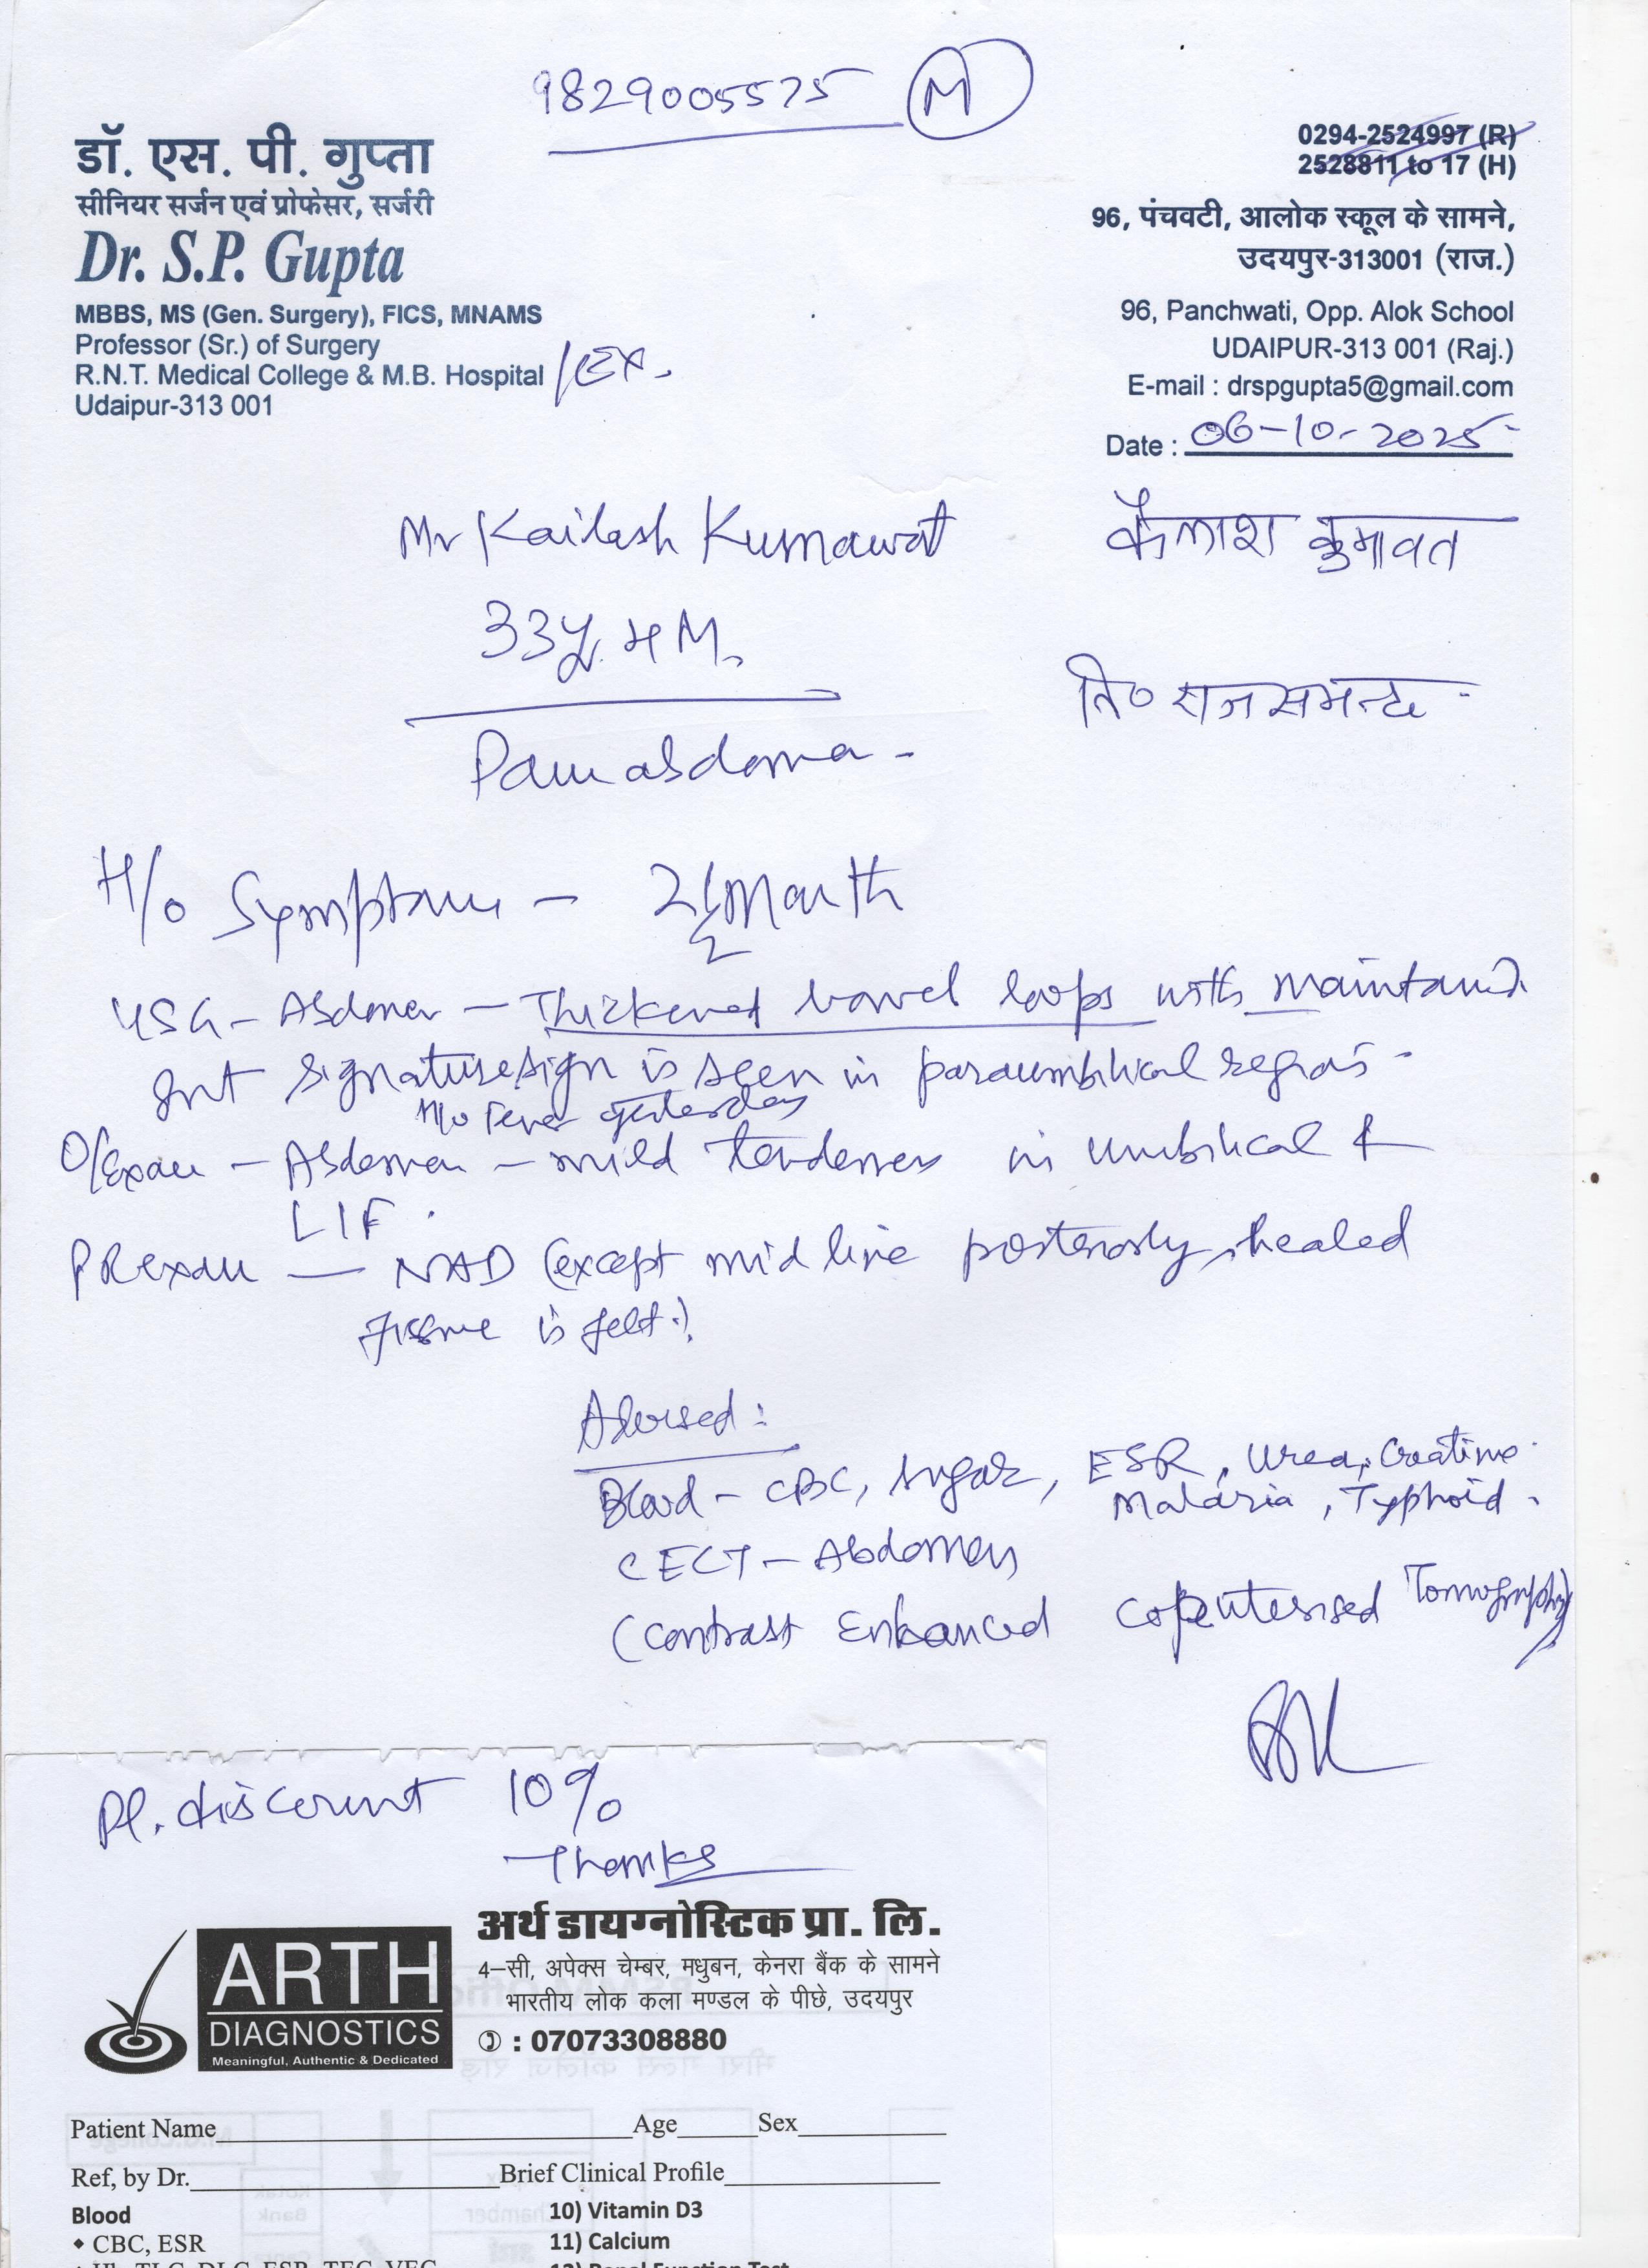 9829005575 (M)
डॉ. एस. पी. गुप्ता
सीनियर सर्जन एवं प्रोफेसर, सर्जरी
Dr. S.P. Gupta
MBBS, MS (Gen. Surgery), FICS, MNAMS
Professor (Sr.) of Surgery
R.N.T. Medical College & M.B. Hospital /Ex.
Udaipur-313 001
0294-2524997 (R)
2528811 to 17 (H)
96, पंचवटी, आलोक स्कूल के सामने,
उदयपुर-313001 (राज.)
96, Panchwati, Opp. Alok School
UDAIPUR-313 001 (Raj.)
E-mail : drspgupta5@gmail.com
Date : 06-10-2025
Mr Kailash Kumawat
कैलाश कुमावत
33y. H M.
नि० राजसमन्द
Pain abdomen -
H/o Symptoms - 2 1/2 Month
USG - Abdomen - Thickened bowel loops with maintained
Gut signature sign is seen in paraumbilical region -
H/o Fever yesterday
O/Exam - Abdomen - mild tenderness in umbilical &
LIF.
PR exam - NAD (except mid line posteriorly, healed
fissure is felt.)
Advised :
Blood - CBC, Sugar, ESR, Urea, Creatine
Malaria, Typhoid.
CECT - Abdomen
(Contrast Enhanced Coputerised Tomography)
Pl. discount 10%
Thanks
ARTH
DIAGNOSTICS
Meaningful, Authentic & Dedicated
अर्थ डायग्नोस्टिक प्रा. लि.
4-सी, अपेक्स चेम्बर, मधुबन, केनरा बैंक के सामने
भारतीय लोक कला मण्डल के पीछे, उदयपुर
: 07073308880
Patient Name Age Sex
Ref, by Dr. Brief Clinical Profile
Blood
• CBC, ESR
10) Vitamin D3
11) Calcium